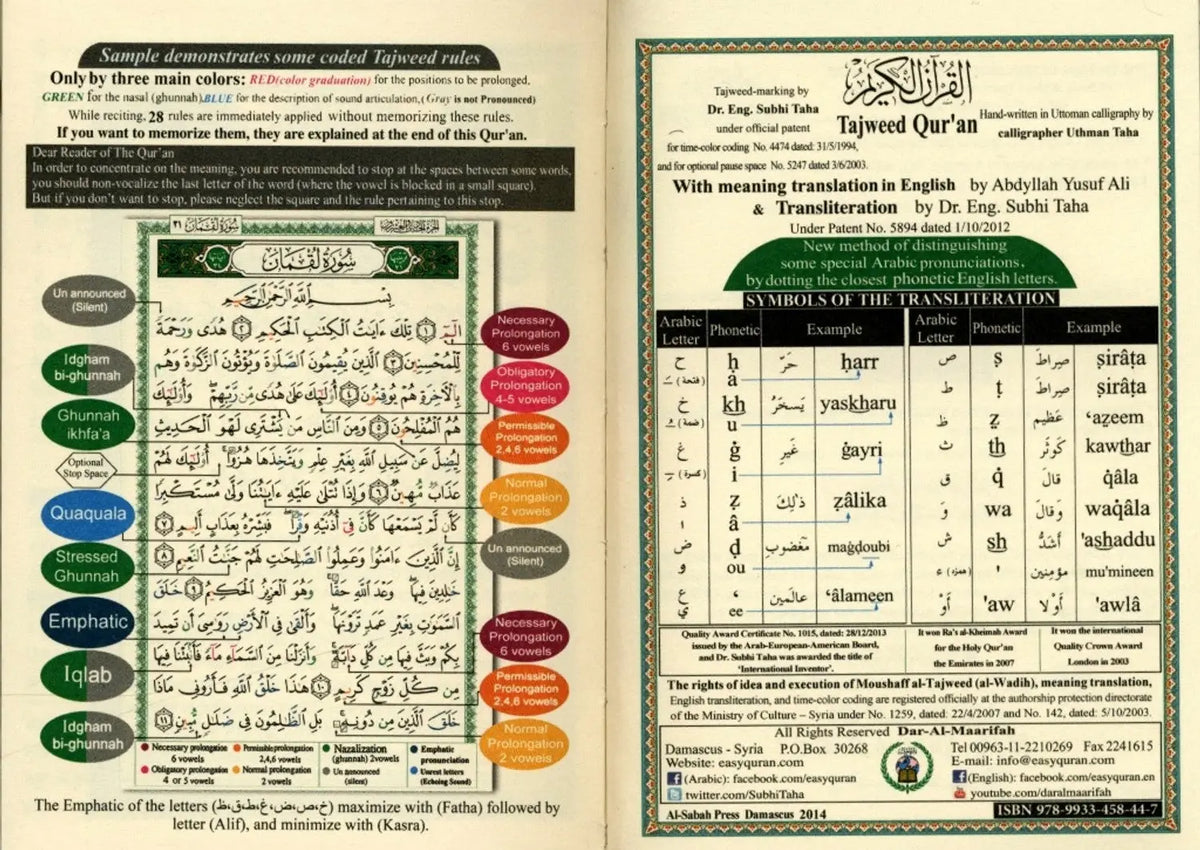 Sample demonstrates some coded Tajweed rules
Only by three main colors: RED(color graduation) for the positions to be prolonged,
GREEN for the nasal (ghunnah),BLUE for the description of sound articulation,(Gray is not Pronounced)
While reciting, 28 rules are immediately applied without memorizing these rules.
If you want to memorize them, they are explained at the end of this Qur'an.
Dear Reader of The Qur'an
In order to concentrate on the meaning, you are recommended to stop at the spaces between some words,
you should non-vocalize the last letter of the word (where the vowel is blocked in a small square).
But if you don't want to stop, please neglect the square and the rule pertaining to this stop.
سُورَةُ لُقْمَان ٣١
سُورَةُ لُقْمَان
بِسْمِ اللَّهِ الرَّحْمَٰنِ الرَّحِيمِ
الٓمٓ ١ تِلْكَ ءَايَٰتُ الْكِتَٰبِ الْحَكِيمِ ٢ هُدًى وَرَحْمَةً
لِّلْمُحْسِنِينَ ٣ الَّذِينَ يُقِيمُونَ الصَّلَوٰةَ وَيُؤْتُونَ الزَّكَوٰةَ وَهُم
بِالْءَاخِرَةِ هُمْ يُوقِنُونَ ٤ أُوْلَٰٓئِكَ عَلَىٰ هُدًى مِّن رَّبِّهِمْ وَأُوْلَٰٓئِكَ
هُمُ الْمُفْلِحُونَ ٥ وَمِنَ النَّاسِ مَن يَشْتَرِى لَهْوَ الْحَدِيثِ
لِيُضِلَّ عَن سَبِيلِ اللَّهِ بِغَيْرِ عِلْمٍ وَيَتَّخِذَهَا هُزُوًا أُوْلَٰٓئِكَ لَهُمْ
عَذَابٌ مُّهِينٌ ٦ وَإِذَا تُتْلَىٰ عَلَيْهِ ءَايَٰتُنَا وَلَّىٰ مُسْتَكْبِرًا
كَأَن لَّمْ يَسْمَعْهَا كَأَنَّ فِىٓ أُذُنَيْهِ وَقْرًا فَبَشِّرْهُ بِعَذَابٍ أَلِيمٍ ٧
إِنَّ الَّذِينَ ءَامَنُوا۟ وَعَمِلُوا۟ الصَّٰلِحَٰتِ لَهُمْ جَنَّٰتُ النَّعِيمِ ٨
خَٰلِدِينَ فِيهَا وَعْدَ اللَّهِ حَقًّا وَهُوَ الْعَزِيزُ الْحَكِيمُ ٩ خَلَقَ
السَّمَٰوَٰتِ بِغَيْرِ عَمَدٍ تَرَوْنَهَا وَأَلْقَىٰ فِى الْأَرْضِ رَوَٰسِىَ أَن تَمِيدَ
بِكُمْ وَبَثَّ فِيهَا مِن كُلِّ دَآبَّةٍ وَأَنزَلْنَا مِنَ السَّمَآءِ مَآءً فَأَنۢبَتْنَا فِيهَا
مِن كُلِّ زَوْجٍ كَرِيمٍ ١٠ هَٰذَا خَلْقُ اللَّهِ فَأَرُونِى مَاذَا
خَلَقَ الَّذِينَ مِن دُونِهِ بَلِ الظَّٰلِمُونَ فِى ضَلَٰلٍ مُّبِينٍ ١١
Un announced
(Silent)
Idgham
bi-ghunnah
Ghunnah
ikhfa'a
Optional
Stop Space
Quaquala
Stressed
Ghunnah
Emphatic
Iqlab
Idgham
bi-ghunnah
Necessary
Prolongation
6 vowels
Obligatory
Prolongation
4-5 vowels
Permissible
Prolongation
2,4,6 vowels
Normal
Prolongation
2 vowels
Un announced
(Silent)
Necessary
Prolongation
6 vowels
Permissible
Prolongation
2,4,6 vowels
Normal
Prolongation
2 vowels
Necessary prolongation 6 vowels
Permissible prolongation 2,4,6 vowels
Nazalization (ghunnah) 2vowels
Emphatic pronunciation
Obligatory prolongation 4 or 5 vowels
Normal prolongation 2 vowels
Un announced (silent)
Unrest letters (Echoing Sound)
The Emphatic of the letters (خ،ص،ض،غ،ط،ق،ظ) maximize with (Fatha) followed by
letter (Alif), and minimize with (Kasra).
القُرْآنُ الكَرِيم
Tajweed Qur'an
Tajweed-marking by
Dr. Eng. Subhi Taha
under official patent
for time-color coding No. 4474 dated: 31/5/1994,
and for optional pause space No. 5247 dated 3/6/2003.
Hand-written in Uttoman calligraphy by
calligrapher Uthman Taha
With meaning translation in English by Abdyllah Yusuf Ali
& Transliteration by Dr. Eng. Subhi Taha
Under Patent No. 5894 dated 1/10/2012
New method of distinguishing
some special Arabic pronunciations,
by dotting the closest phonetic English letters.
SYMBOLS OF THE TRANSLITERATION
Arabic Letter Phonetic Example Arabic Letter Phonetic Example
ح ḥ حَرّ ḥarr
(فتحة) a
خ kh يَسخَرُ yaskharu
(ضمة) u
غ ġ غَيرِ ġayri
(كسرة) i
ذ ẓ ذَلِكَ ẓâlika
ا â
ض ḍ مَغضوبِ maġdoubi
و ou
ع ‘ عالَمين ‘âlameen
ي ee
ص ṣ صِراطَ ṣirâṭa
ط ṭ صِراطَ ṣirâṭa
ظ ẓ عَظيم ‘aẓeem
ث th كَوثَر kawthar
ق q̇ قالَ q̇âla
وَ wa وَقالَ waq̇âla
ش sh أَشَدُّ 'ashaddu
(همزة) ء ' مؤمِنين mu'mineen
أَوْ 'aw أَوْلا 'awlâ
Quality Award Certificate No. 1015, dated: 28/12/2013
issued by the Arab-European-American Board,
and Dr. Subhi Taha was awarded the title of
‘International Inventor’.
It won Ra's al-Kheimah Award
for the Holy Qur'an
the Emirates in 2007
It won the international
Quality Crown Award
London in 2003
The rights of idea and execution of Moushaff al-Tajweed (al-Wadih), meaning translation,
English transliteration, and time-color coding are registered officially at the authorship protection directorate
of the Ministry of Culture – Syria under No. 1259, dated: 22/4/2007 and No. 142, dated: 5/10/2003.
All Rights Reserved Dar-Al-Maarifah
Damascus - Syria P.O.Box 30268
Website: easyquran.com
(Arabic): facebook.com/easyquran
twitter.com/SubhiTaha
Tel 00963-11-2210269 Fax 2241615
E-mail: info@easyquran.com
(English): facebook.com/easyquran.en
youtube.com/daralmaarifah
Al-Sabah Press Damascus 2014
ISBN 978-9933-458-44-7